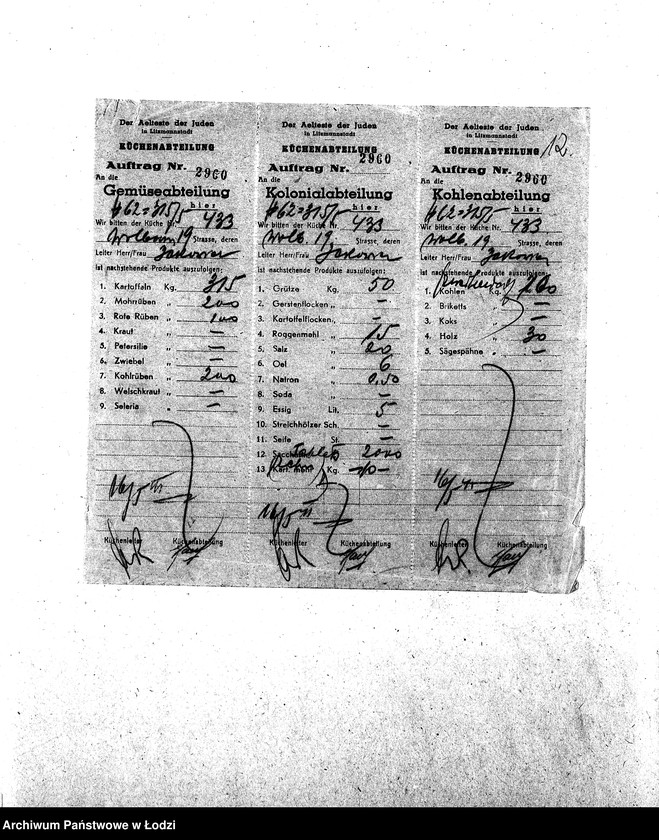 Der Aelteste der Juden
in Litzmannstadt
KÜCHENABTEILUNG
Auftrag Nr. 2960
An die
Gemüseabteilung
hier
Wir bitten der Küche Nr. 433
19 Strasse, deren
Leiter Herr/Frau
ist nachstehende Produkte auszufolgen:
1. Kartoffeln Kg. 315
2. Mohrrüben „ 200
3. Rote Rüben „ 100
4. Kraut „ —
5. Petersilie „ —
6. Zwiebel „ —
7. Kohlrüben „ 200
8. Welschkraut „ —
9. Seleria „ —
Küchenleiter Küchenabteilung
Der Aelteste der Juden
in Litzmannstadt
KÜCHENABTEILUNG
Auftrag Nr. 2960
An die
Kolonialabteilung
hier
Wir bitten der Küche Nr. 433
19, Strasse, deren
Leiter Herr/Frau
ist nachstehende Produkte auszufolgen:
1. Grütze Kg. 50
2. Gerstenflocken „ —
3. Kartoffelflocken „ —
4. Roggenmehl „ 15
5. Salz „ 20
6. Oel „ 6
7. Natron „ 0,50
8. Soda „ —
9. Essig Lit. 5
10. Streichhölzer Sch. —
11. Seife St. —
12. 2000
13 Kg.
Küchenleiter Küchenabteilung
12.
Der Aelteste der Juden
in Litzmannstadt
KÜCHENABTEILUNG
Auftrag Nr. 2960
An die
Kohlenabteilung
hier
Wir bitten der Küche Nr. 433
19, Strasse, deren
Leiter Herr/Frau
ist nachstehende Produkte auszufolgen:
1. Kohlen Kg.
2. Briketts „ —
3. Koks „ —
4. Holz „ 30
5. Sägespähne „ —
Küchenleiter Küchenabteilung
Archiwum Państwowe w Łodzi